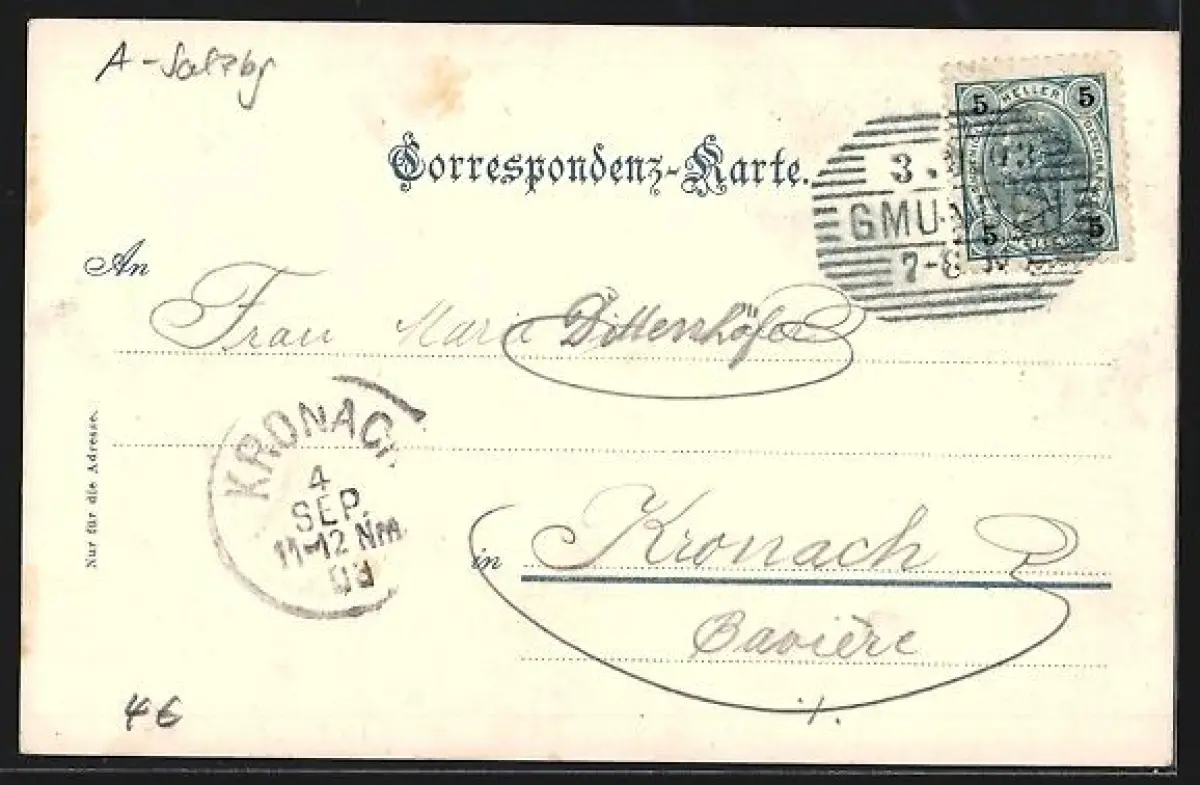 A-Salzbg
Correspondenz-Karte.
5 HELLER 5
5 5
3. 03
GMUNDEN
7-8 N
An
Frau Marie Dittershöfer
KRONACH
4
SEP.
11-12 Nm.
03
Nur für die Adresse.
in Kronach
Bavière
46